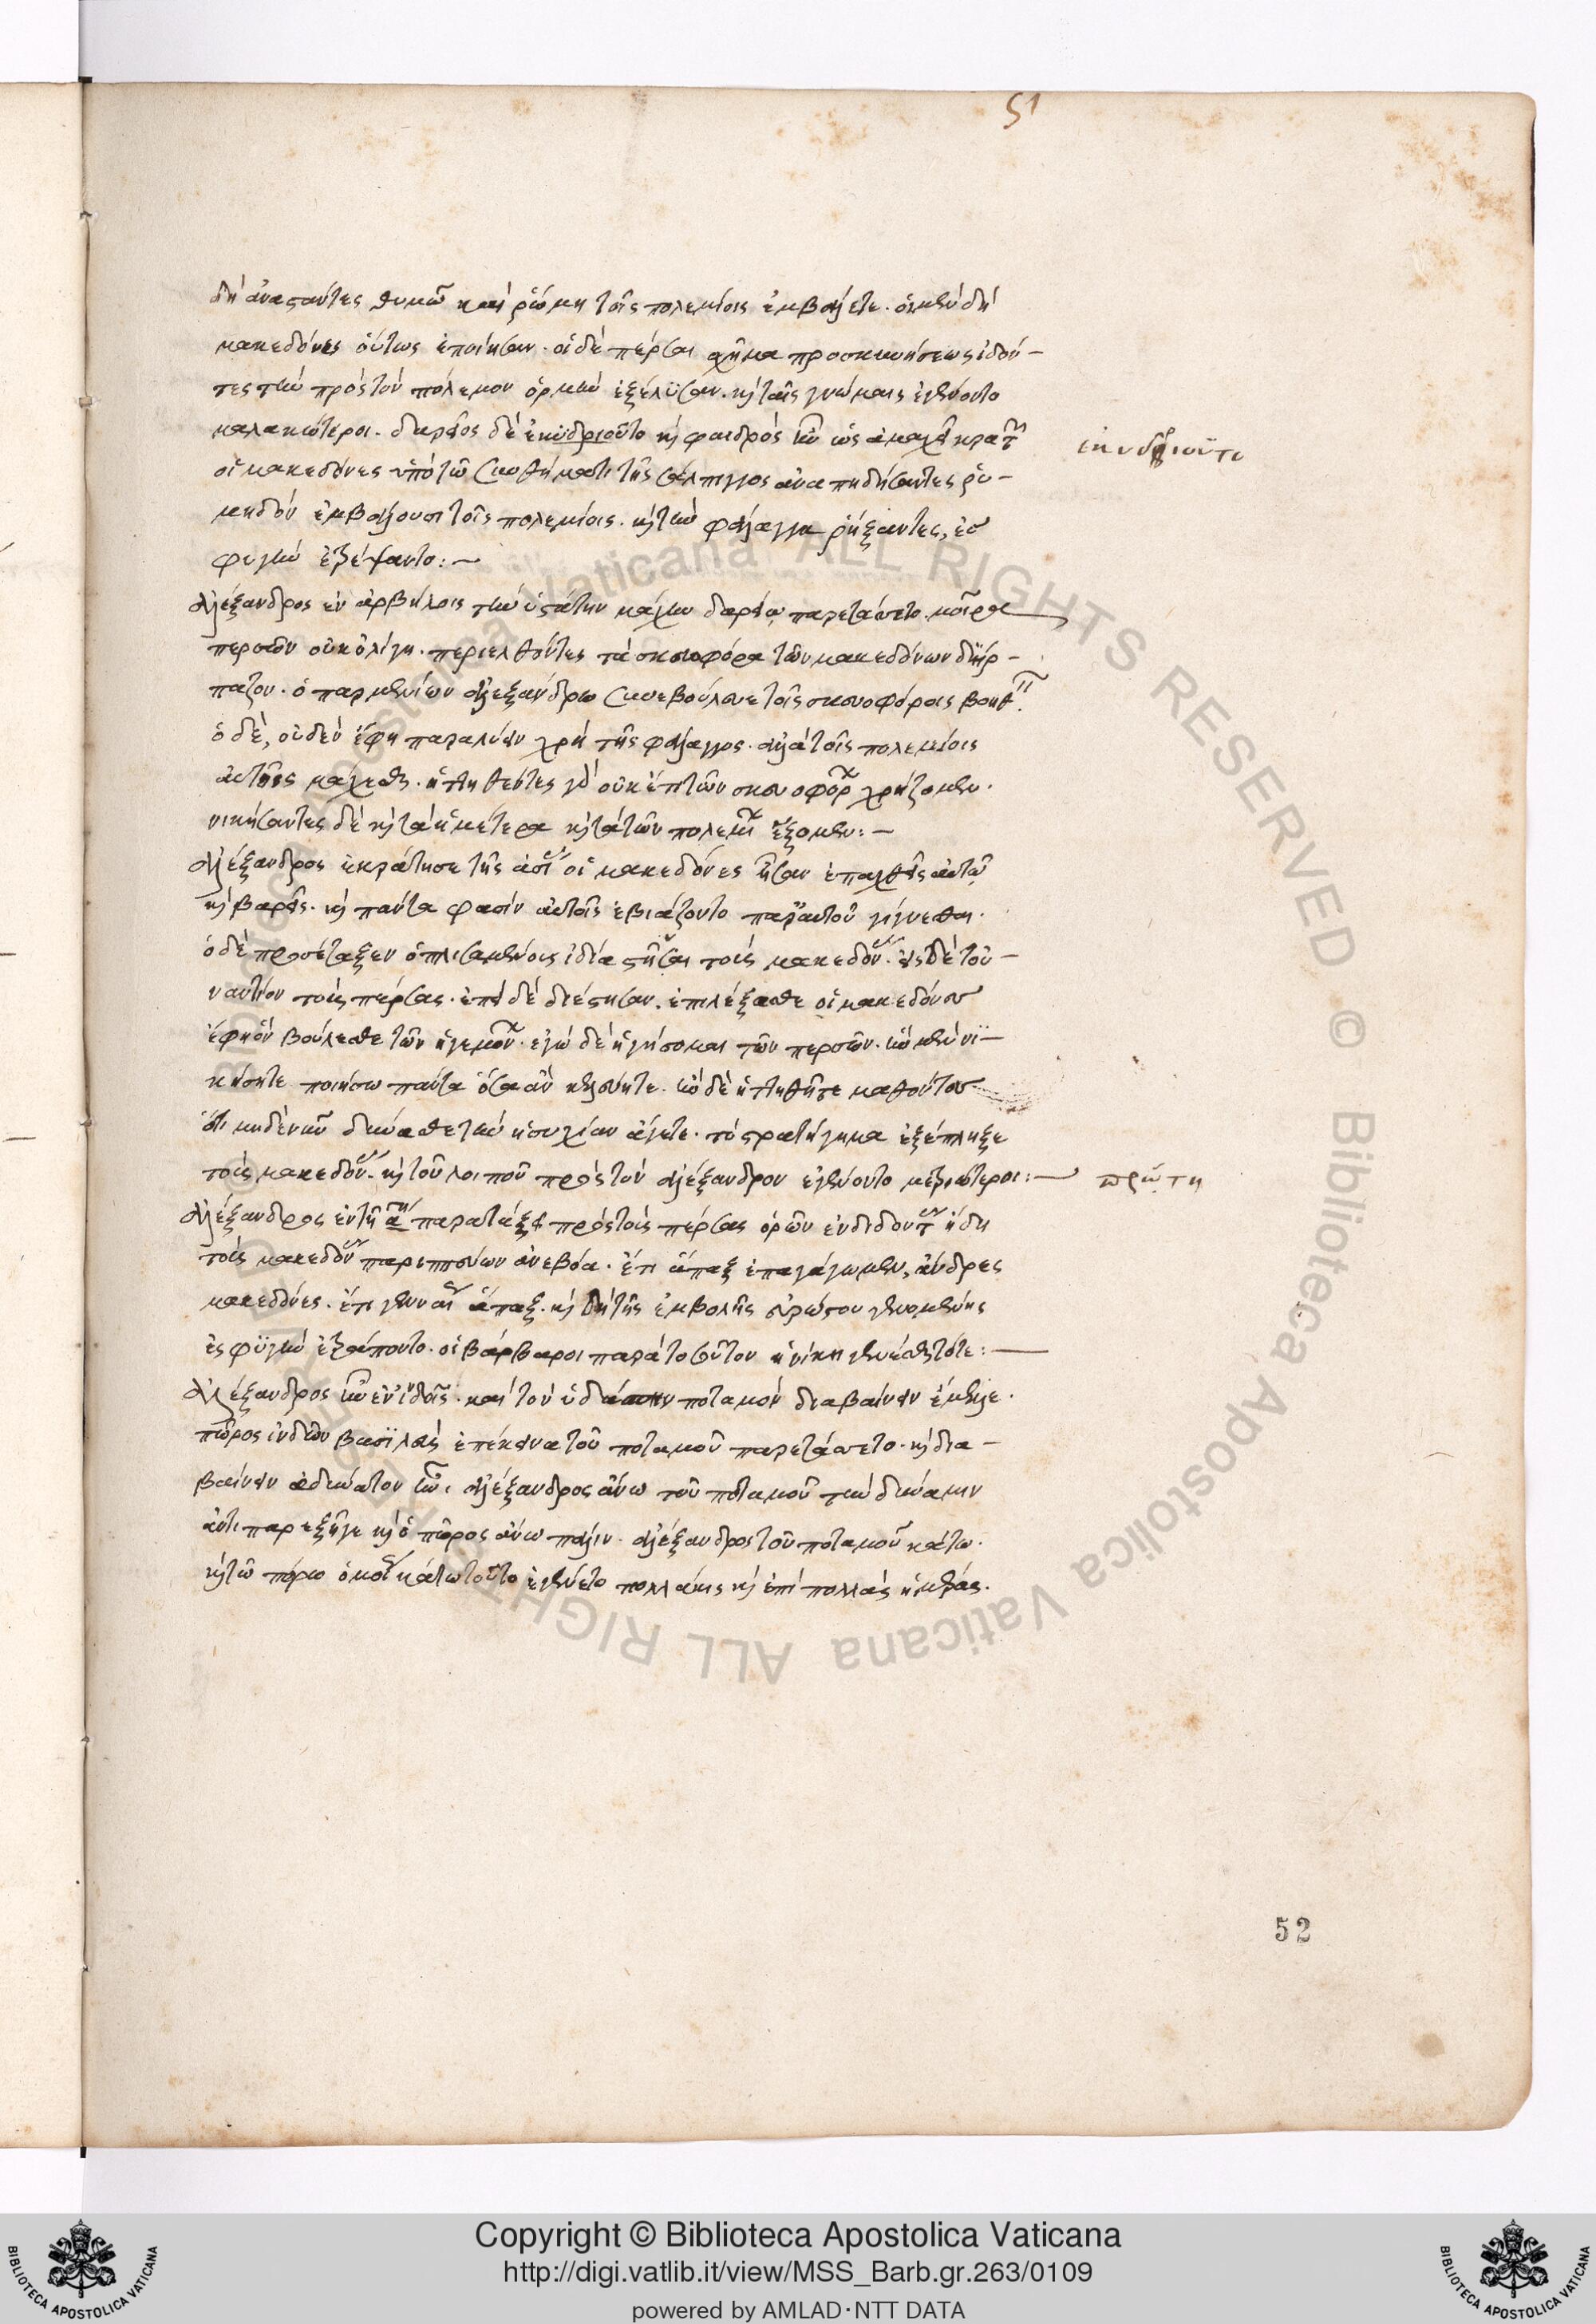 51
δὴ ἀναστάντες θυμῶ καὶ ῥώμη τοῖς πολεμίοις ἐμβάλλετε. οἱ μὲν δὴ
μακεδόνες οὕτως ἐποίησαν. οἱ δὲ πέρσαι σχῆμα προσκυνήσεως ἰδόν-
τες τὴν πρὸς τὸν πόλεμον ὁρμὴν ἐξέλυσαν. καὶ ταῖς γνώμαις ἐγένοντο
μαλακώτεροι. δαρεῖος δὲ ἐκυδριοῦτο καὶ φαιδρὸς ἦν ὡς ἀμαχεὶ κρατῶν
ἐκυδριοῦτο
οἱ μακεδόνες ὑπὸ τῶ συνθήματι τῆς σάλπιγγος ἀναπηδήσαντες ῥυ-
μηδὸν ἐμβάλλουσι τοῖς πολεμίοις. καὶ τὴν φάλαγγα ῥήξαντες, ἐς
φυγὴν ἐτρέψαντο:-
Ἀλέξανδρος ἐν ἀρβήλοις τὴν ὑστάτην μάχην δαρείω παρετάσσετο. μοῖρα
περσῶν οὐκ ὀλίγη. περιελθόντες τὰ σκευοφόρα τῶν μακεδόνων διήρ-
παζον. ὁ παρμενίων ἀλεξάνδρω συνεβούλευε τοῖς σκευοφόροις βοηθεῖν.
ὁ δὲ, οὐδὲν ἔφη παραλύειν χρὴ τῆς φάλαγγος. ἀλλὰ τοῖς πολεμίοις
αὐτοῖς μάχεσθαι. ἡττηθέντες γὰρ οὐκέτι τῶν σκευοφόρων χρήζομεν.
νικήσαντες δὲ καὶ τὰ ἡμέτερα καὶ τὰ τῶν πολεμίων ἕξομεν:-
Ἀλέξανδρος ἐκράτησε τῆς ἀσίας οἱ μακεδόνες ἦσαν ἐπαχθεῖς αὐτῶ
καὶ βαρεῖς. καὶ πάντα φασὶν αὐτοῖς ἐβιάζοντο παρ' αὐτοῦ γίγνεσθαι.
ὁ δὲ προσέταξεν ὁπλισαμένοις ἰδία στῆσαι τοὺς μακεδόνας. εἰς δὲ τοὐ-
ναντίον τοὺς πέρσας. ἐπεὶ δὲ διέστησαν. ἐπιλέξασθε οἱ μακεδόνες
ἔφη ὃν βούλεσθε τῶν ἡγεμόνων. ἐγὼ δὲ ἡγήσομαι τῶν περσῶν. κἂν μὲν νι-
κήσητε ποιήσω πάντα ὅσα ἂν κελεύητε. κἂν δὲ ἡττηθῆτε μαθόντες
ὅτι μηδὲν δύνασθε τὴν ἡσυχίαν ἄγετε. τὸ στρατήγημα ἐξέπληξε
τοὺς μακεδόνας. καὶ τοῦ λοιποῦ πρὸς τὸν ἀλέξανδρον ἐγένοντο μετριώτεροι:-
πρώτη
Ἀλέξανδρος ἐν τῆ αʹ παρατάξει πρὸς τοὺς πέρσας ὁρῶν ἐνδιδόντας ἤδη
τοὺς μακεδόνας παριππεύων ἀνεβόα. ἔτι ἅπαξ ἐπαγάγωμεν, ἄνδρες
μακεδόνες. ἔτι γενναίως ἅπαξ. καὶ δὴ τῆς ἐμβολῆς εὐρώστου γενομένης
ἐς φυγὴν ἐτράποντο. οἱ βάρβαροι παρὰ τοσοῦτον ἡ νίκη γενέσθαι τότε:-
Ἀλέξανδρος ἦν ἐν ἰνδοῖς. καὶ τὸν ὑδάσπην ποταμὸν διαβαίνειν ἔμελλε.
πῶρος ἰνδῶν βασιλεὺς ἐπέκεινα τοῦ ποταμοῦ παρετάσσετο. καὶ δια-
βαίνειν ἀδύνατον ἦν. ἀλέξανδρος ἄνω τοῦ ποταμοῦ τὴν δύναμιν
ἀντιπαρεξῆγε καὶ ὁ πῶρος ἄνω πάλιν. ἀλέξανδρος τοῦ ποταμοῦ κάτω.
καὶ τῶ πώρω ὁμοίως κάτω τοῦτο ἐγένετο πολλάκις καὶ ἐπὶ πολλὰς ἡμέρας.
52
Copyright © Biblioteca Apostolica Vaticana
http://digi.vatlib.it/view/MSS_Barb.gr.263/0109
powered by AMLAD·NTT DATA